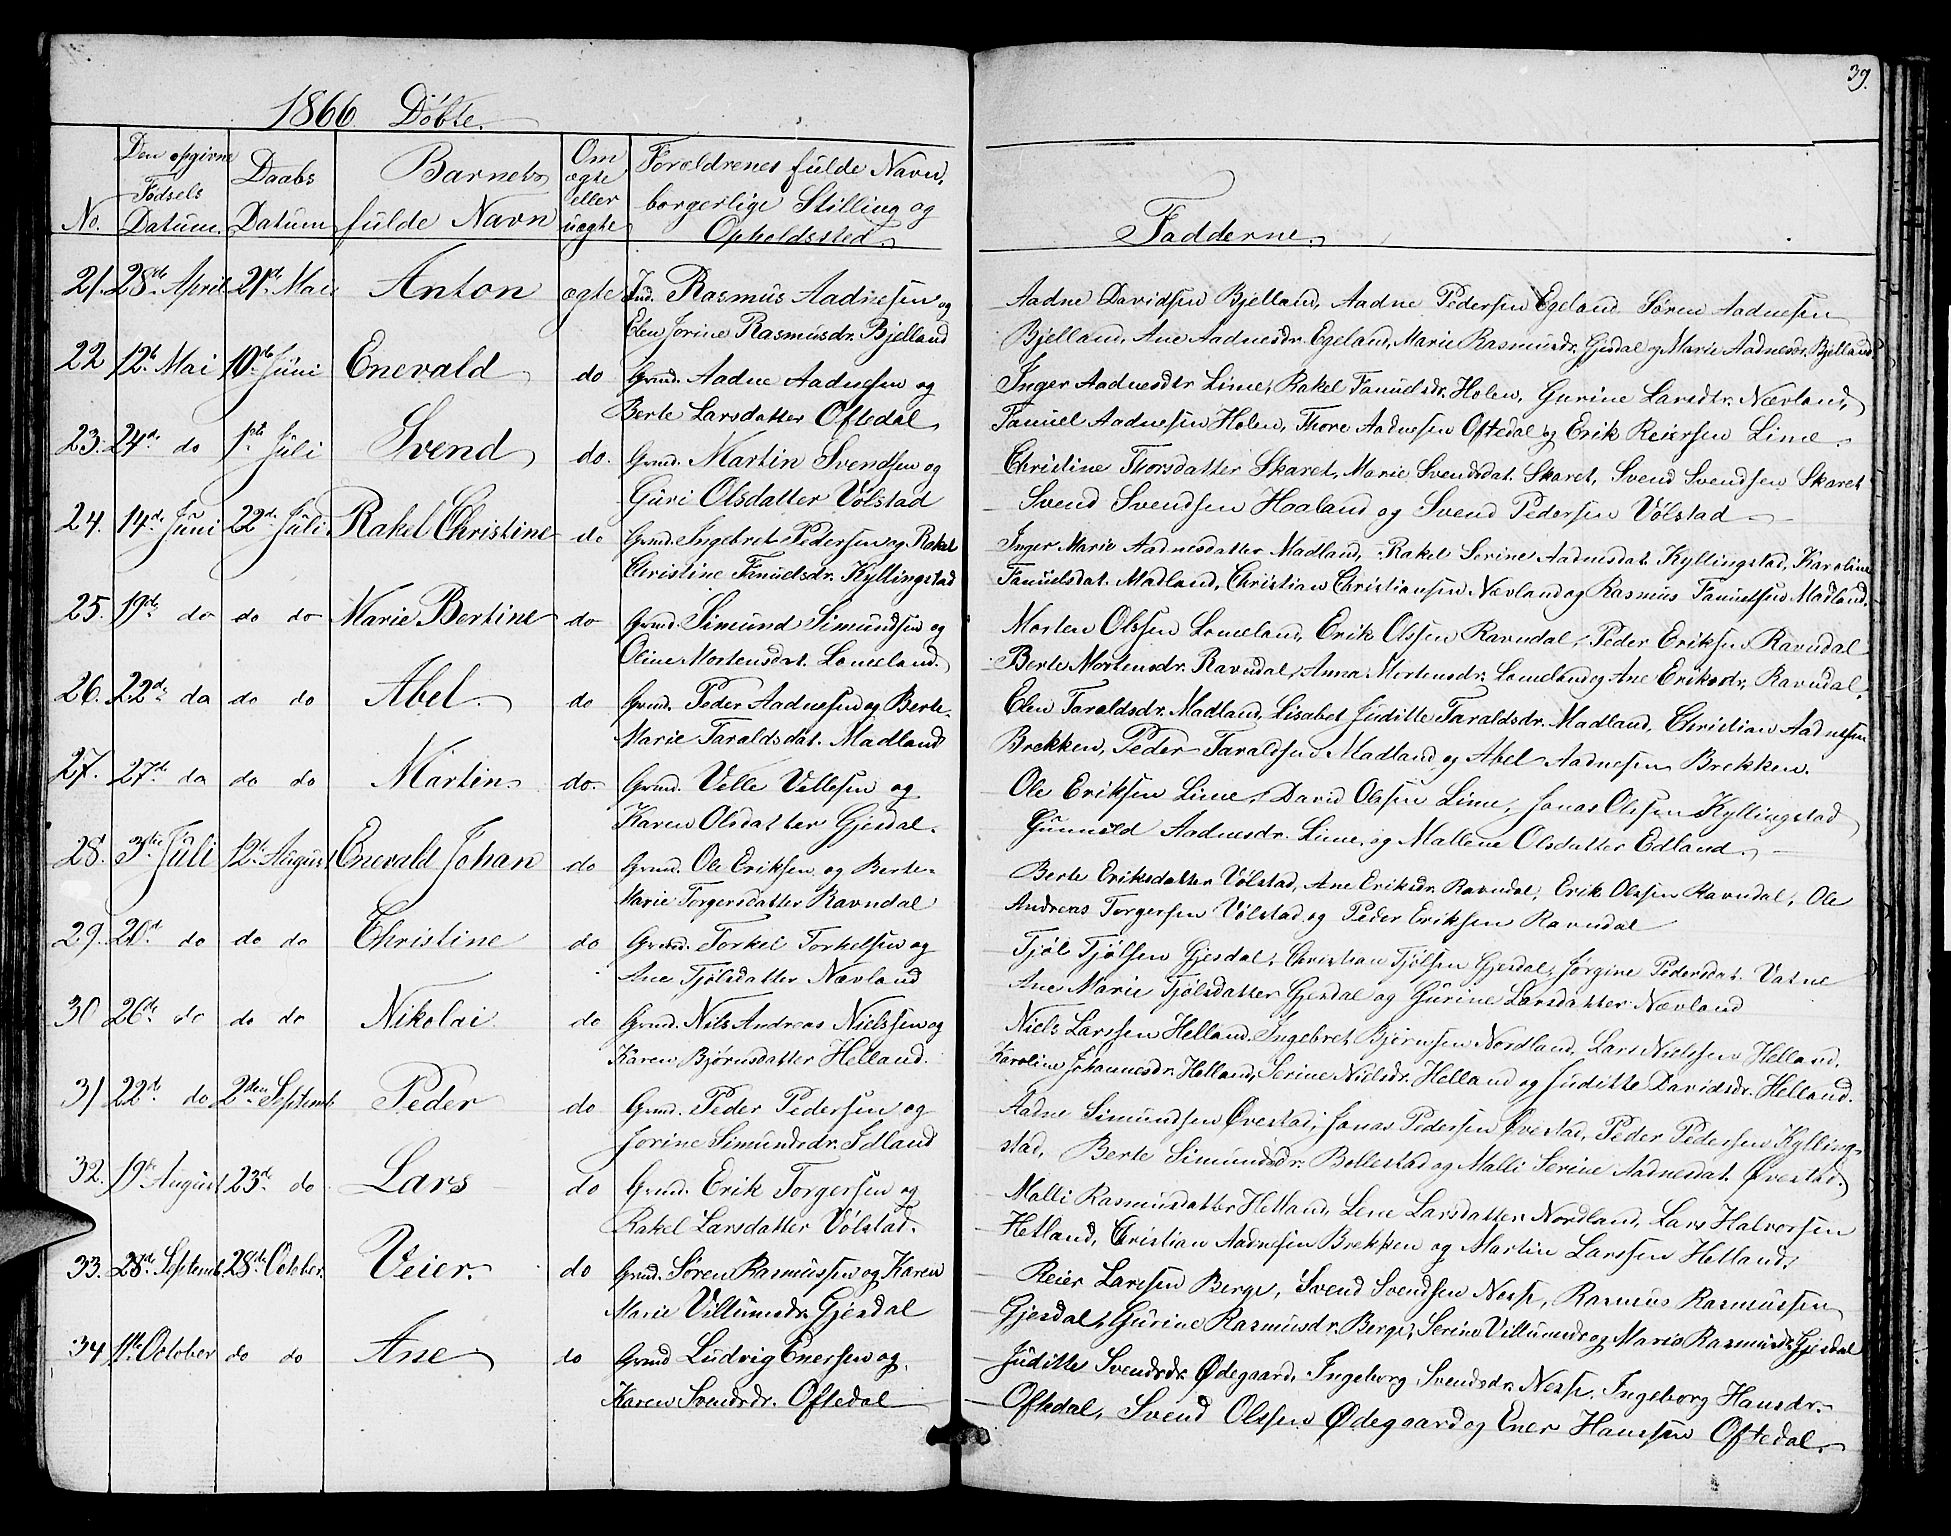 39.
1866 Døbte.
No.
Den opgivne
Fødsels
Datum.
Daabs
Datum
Barnets
fulde Navn
Om
ægte
eller
uægte
Forældrenes fulde Navn,
borgerlige Stilling og
Opholdssted.
Fadderne.
21. 28de April 21de Mai Anton ægte Ind. Rasmus Aadnesen og
Elen Jorine Rasmusdr. Bjelland
Aadne Davidsen Bjelland, Aadne Pedersen Egeland Søren Aadnesen
Bjelland, Ane Aadnesdr. Egeland, Marie Rasmusdr. Gjesdal og Marie Aadnesdr. Bjelland.
22 12te Mai 10de Juni Enevald do Grmd. Aadne Aadnesen og
Berte Larsdatter Oftedal
Inger Aadnesdtr Lime, Rakel Fanuelsdr. Holen, Gurine Larsdtr. Nævland,
Fanuel Aadnesen Holen, Thore Aadnesen Oftedal og Erik Reiersen Lime.
23. 24de do 1ste Juli Svend do. Grmd. Martin Svendsen og
Guri Olsdatter Vølstad
Christine Thorsdatter Skaret, Marie Svendsdat. Skaret, Svend Svendsen Skaret
Svend Svendsen Haaland og Svend Pedersen Vølstad
24. 14de Juni 22de Juli Rakel Christine do Grmd. Ingebret Pedersen og Rakel
Christine Fanuelsdr. Kyllingstad
Inger Marie Aadnesdatter Madland, Rakel Serine Aadnesdat. Kyllingstad, Karoline
Fanuelsdat. Madland, Christian Christiansen Nævland og Rasmus Fanuelsen Madland.
25. 19de do do do Marie Bertine do Grmd. Simund Simundsen og
Oline Mortensdat. Lomeland.
Morten Olssen Lomeland, Erik Olssen Ravndal, Peder Eriksen Ravndal
Berte Mortensdr. Ravndal, Anna Mortensdr. Lomeland og Ane Eriksdr. Ravndal.
26. 22de do do do Abel. do Grmd. Peder Aadnesen og Berte
Marie Taraldsdat. Madland
Elen Taraldsdr. Madland, Lisabet Juditte Taraldsdr. Madland, Christian Aadnesen
Brekken, Peder Taraldsen Madland og Abel Aadnesen Brekken.
27. 27de do do do Martin do. Grmd. Velle Vellesen og
Karen Olsdatter Gjesdal.
Ole Eriksen Lime, David Olssen Lime, Jonas Olssen Kyllingstad
Gunnild Aadnesdr. Lime og Mallene Olsdatter Edland.
28. 3die Juli 12te August Enevald Johan do Grmd. Ole Eriksen og Berte
Marie Torgersdatter Ravndal
Berte Eriksdatter Vølstad, Ane Eriksdr. Ravndal, Erik Olssen Ravndal, Ole
Andreas Torgersen Vølstad og Peder Eriksen Ravndal
29. 20de do do do Christine do Grmd. Torkel Torkelsen og
Ane Tjølsdatter Nævland
Tjøl Tjølsen Gjesdal, Christian Tjølsen Gjesdal, Jørgine Pedersdat. Vatne
Ane Marie Tjølsdatter Gjesdal og Gurine Larsdatter Nævland
30 26de do do do Nikolai do Grmd. Nils Andreas Nielssen og
Karen Bjørnsdatter Helland.
Niels Larssen Helland, Ingebret Bjørnsen Nordland, Lars Nielssen Helland.
Karoline Johannesdr. Helland, Serine Nielsdr. Helland og Juditte Davidsdr. Helland.
31 22de do 2den Septemb. Peder do Grmd. Peder Pedersen og
Jorine Simundsdr. Idland
Aadne Simundsen Øvestad, Jonas Pedersen Øvestad, Peder Pedersen Kylling-
stad, Berte Simundsdr. Bollestad og Malli Serine Aadnesdat. Øvestad.
32. 19de August 23de do Lars do Grmd. Erik Torgersen og
Rakel Larsdatter Vølstad.
Malli Rasmusdatter Hetland, Lene Larsdatter Nordland, Lars Halvorsen
Hetland, Christian Aadnesen Brekken og Martin Larssen Hetland.
33. 28de Septemb. 28de October. Veier. do Grmd. Søren Rasmussen og Karen
Marie Villumsdr. Gjesdal
Reier Larssen Berge, Svend Svendsen Nese, Rasmus Rasmussen
Gjesdal, Gurine Rasmusdr. Berge, Serine Villumsdr. og Marie Rasmusdr. Gjesdal
34 1ste October do do Ane do Grmd Ludvig Enersen og
Karen Svendsdr. Oftedal
Juditte Svendsdr. Ødegaard, Ingeborg Svendsdr. Nese, Ingeborg Hansdr.
Oftedal, Svend Olssen Ødegaard og Ener Hanssen Oftedal.